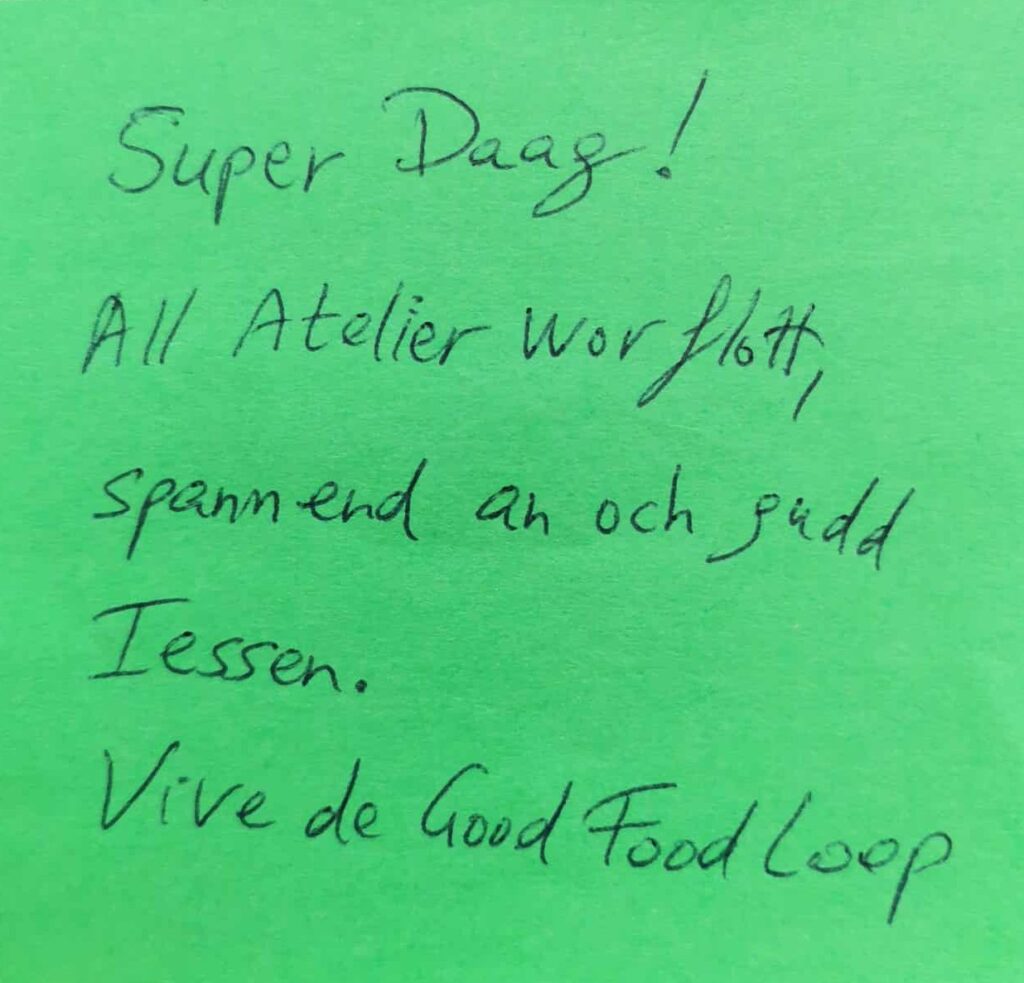 Super Daag!
All Atelier wor flott,
spannend an och gudd
Iessen.
Vive de Good Food Loop